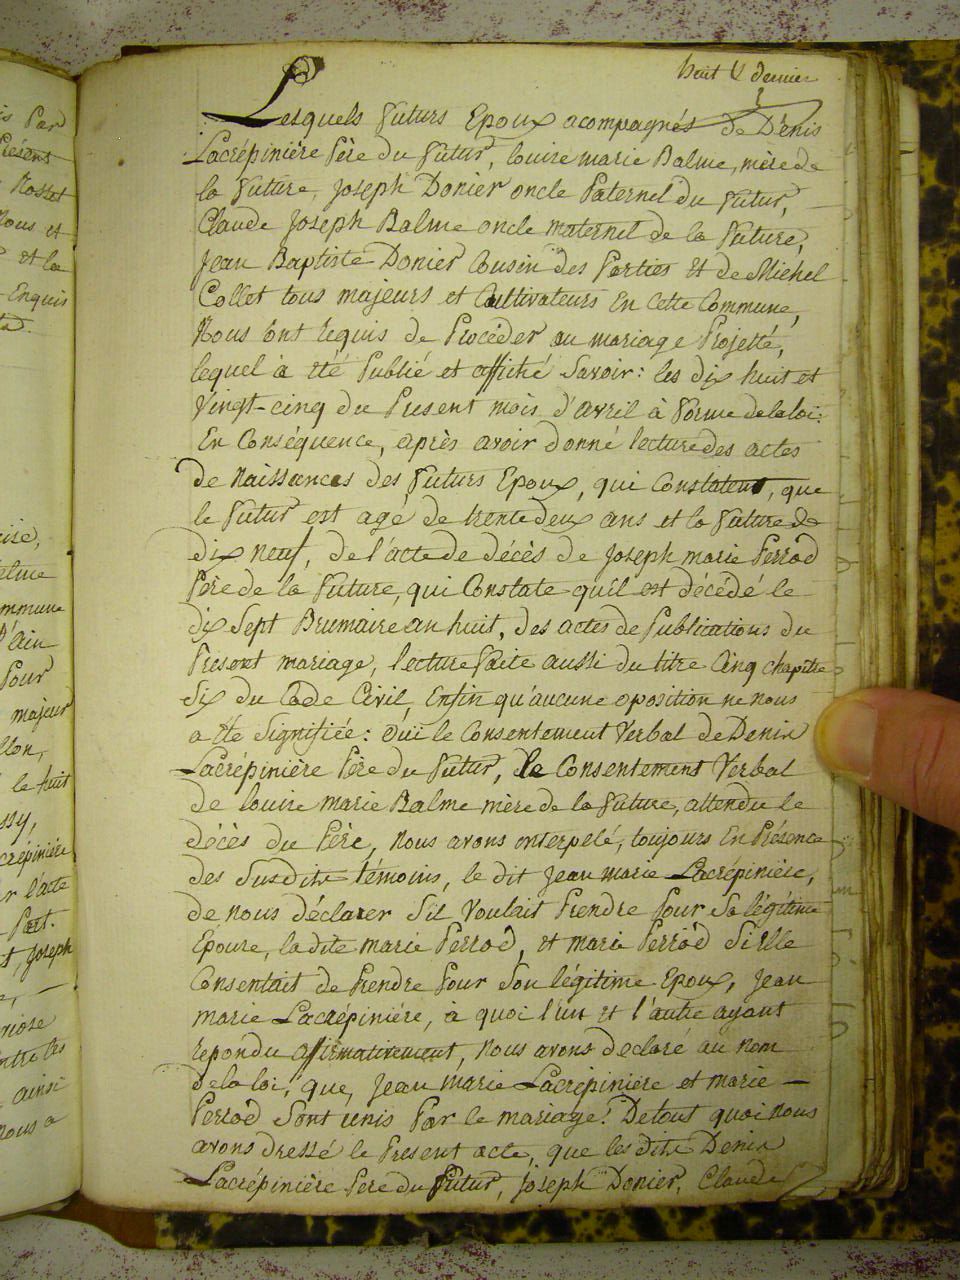 huit & dernier
Lesquels futurs Epoux acompagnés de Dénis
Lacrépinière Père du futur, louise marie Balme, mère de
la future, Joseph Donier oncle Paternel du futur,
Claude Joseph Balme oncle maternel de la future,
Jean Baptiste Donier Cousin des Parties Et de Michel
Collet tous majeurs et Cultivateurs En Cette Commune,
Nous ont requis de Procéder au mariage Projetté,
lequel à été Publié et affiché Savoir: les dix huit et
vingt-cinq du Present mois d'avril à forme de la loi:
En Conséquence, après avoir donné lecture des actes
de Naissances des futurs Epoux, qui Constatent, que
le futur est agé de trente deux ans et la future de
dix neuf, de l'acte de décès de Joseph marie Perrod
Père de la future, qui Constate qu'il est décédé le
dix Sept Brumaire an huit, des actes de Publications du
Present mariage, lecture faite aussi du titre Cinq chapitre
Six du Code Civil, Enfin qu'aucune oposition ne nous
a été Signifiée: Oui le Consentement Verbal de Denis
Lacrépinière Père du futur, de le Consentement Verbal
de louise marie Balme mère de la future, attendu le
décès du Père, nous avons interpelé, toujours En Présence
des Susdits témoins, le dit Jean marie Lacrépinière,
de nous déclarer S'il Voulait Prendre Pour Sa légitime
Epouse, la dite marie Perrod, et marie Perrod Si Elle
Consentait de Prendre Pour Son légitime Epoux, Jean
marie Lacrépinière, à quoi l'un et l'autre ayant
repondu affirmativement, Nous avons déclaré au nom
de la loi, que, Jean marie Lacrépinière et marie
Perrod Sont unis Par le mariage: De tout quoi Nous
avons dressé le Present acte, que les dits Denis
Lacrépinière Pere du futur, Joseph Donier, Claude